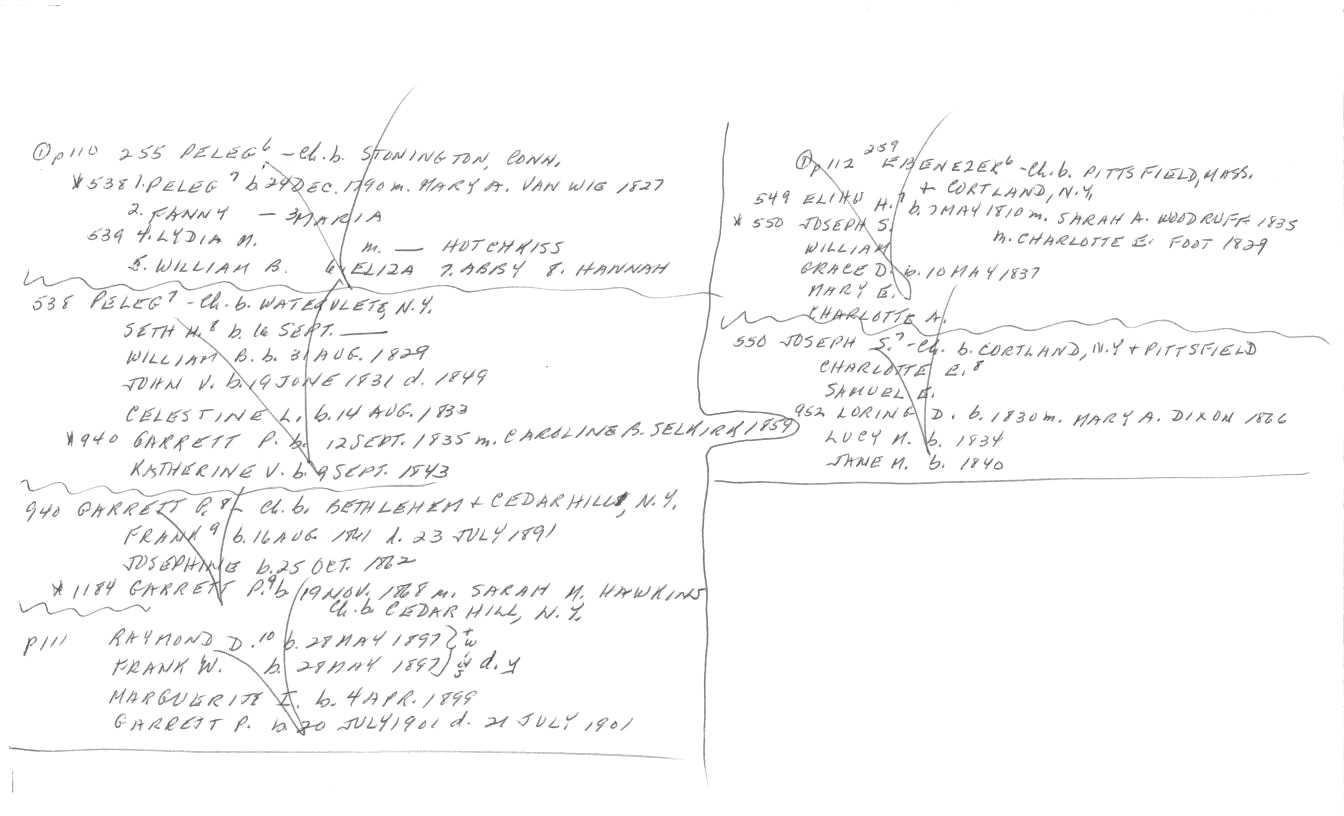 ① p110 255 PELEG⁶ - Ch. b. STONINGTON, CONN.
* 538 1. PELEG⁷ b. 24 DEC. 1790 m. MARY A. VAN WIE 1827
2. FANNY - 3 MARIA
539 4. LYDIA M. m. — HOTCHKISS
5. WILLIAM B. 6. ELIZA 7. ABBY 8. HANNAH
538 PELEG⁷ - Ch. b. WATERVLETE, N.Y.
SETH H.⁸ b. 16 SEPT. —
WILLIAM B. b. 31 AUG. 1829
JOHN V. b. 19 JUNE 1831 d. 1849
CELESTINE L. b. 14 AUG. 1833
* 940 GARRETT P. b. 12 SEPT. 1835 m. CAROLINE B. SELKIRK 1859
KATHERINE V. b. 9 SEPT. 1843
940 GARRETT P.⁸ - Ch. b. BETHLEHEM + CEDAR HILL, N.Y.
FRANK⁹ b. 16 AUG 1861 d. 23 JULY 1891
JOSEPHINE b. 25 OCT. 1862
* 1184 GARRETT P.⁹ b. 19 NOV. 1868 m. SARAH M. HAWKINS
Ch. b. CEDAR HILL, N.Y.
p111 RAYMOND D.¹⁰ b. 28 MAY 1897 } tw
FRANK W. b. 28 MAY 1897 } ins d. y
MARGUERITE I. b. 4 APR. 1899
GARRETT P. b. 20 JULY 1901 d. 21 JULY 1901
① p112 259 EBENEZER⁶ - Ch. b. PITTSFIELD, MASS.
+ CORTLAND, N.Y.
549 ELIHU H.⁷ b. 7 MAY 1810 m. SARAH A. WOODRUFF 1835
* 550 JOSEPH S. m. CHARLOTTE E. FOOT 1829
WILLIAM
GRACE D. b. 10 MAY 1837
MARY E.
CHARLOTTE A.
550 JOSEPH S.⁷ - Ch. b. CORTLAND, N.Y + PITTSFIELD
CHARLOTTE E.⁸
SAMUEL E.
952 LORING D. b. 1830 m. MARY A. DIXON 1866
LUCY M. b. 1834
JANE M. b. 1840